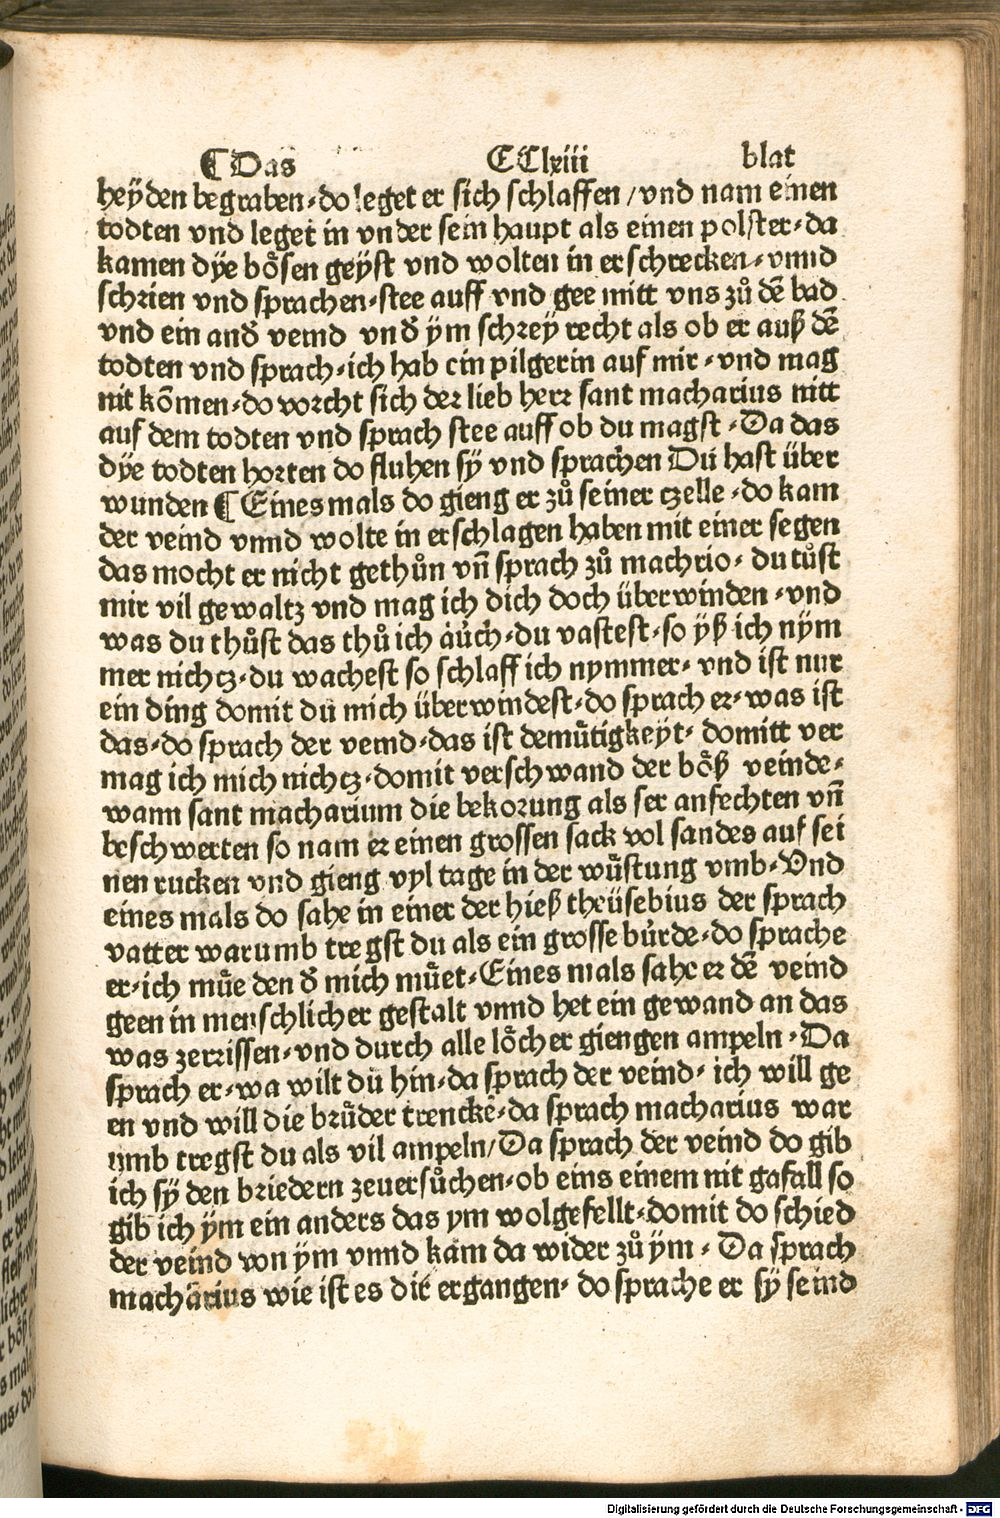 ¶ Das CClxiii blat
heyden begraben·do leget er sich schlaffen /vnd nam einen
todten vnd leget in vnder sein haupt als einen polster·da
kamen dÿe boͤsen geÿst vnd wolten in erschrecken·vnnd
schrien vnd sprachen·stee auff vnd gee mitt vns zuͦ dē bad
vnd ein and̄ veind vnd̄ ÿm schreÿ recht als ob er auß dē
todten vnd sprach·ich hab ein pilgerin auf mir·vnd mag
nit kōmen·do vorcht sich der lieb herr sant macharius nitt
auf dem todten vnd sprach stee auff ob du magst·Da das
dÿe todten horten do fluhen sÿ vnd sprachen Du hast über
wunden ¶ Eines mals do gieng er zuͦ seiner czelle·do kam
der veind vnnd wolte in erschlagen haben mit einer segen
das mocht er nicht gethuͦn vn̄ sprach zuͦ machrio·du tuͦst
mir vil gewaltz vnd mag ich dich doch überwinden·vnd
was du thuͦst das thuͦ ich auch·du vastest·so ÿß ich nÿm
mer nichcz·du wachest so schlaff ich nymmer·vnd ist nur
ein ding domit du mich überwindest·do sprach er·was ist
das·do sprach der veind·das ist demuͤtigkeyt·domitt ver
mag ich mich nichcz·domit verschwand der boͤß veinde·
wann sant macharium die bekorung als ser anfechten vn̄
beschwerten so nam er einen grossen sack vol sandes auf sei
nen rucken vnd gieng vyl tage in der wuͤstung vmb·Vnd
eines mals do sahe in einer der hieß theüsebius der sprach
vatter warumb tregst du als ein grosse bürde·do sprache
er·ich muͤe den d̄ mich muͤet·Eines mals sahe er dē veind
geen in menschlicher gestalt vnnd het ein gewand an das
was zerrissen·vnd durch alle loͤcher giengen ampeln·Da
sprach er·wa wilt du hin·da sprach der veind·ich will ge
en vnd will die bruͤder trenckē·da sprach macharius war
umb tregst du als vil ampeln/Da sprach der veind do gib
ich sÿ den briedern zeuersuͦchen·ob eins einem nit gafall so
gib ich ÿm ein anders das ym wolgefellt·domit do schied
der veind von ÿm vnnd kam da wider zuͦ ÿm·Da sprach
macharius wie ist es dir ergangen·do sprache er sÿ seind
Digitalisierung gefördert durch die Deutsche Forschungsgemeinschaft - DFG